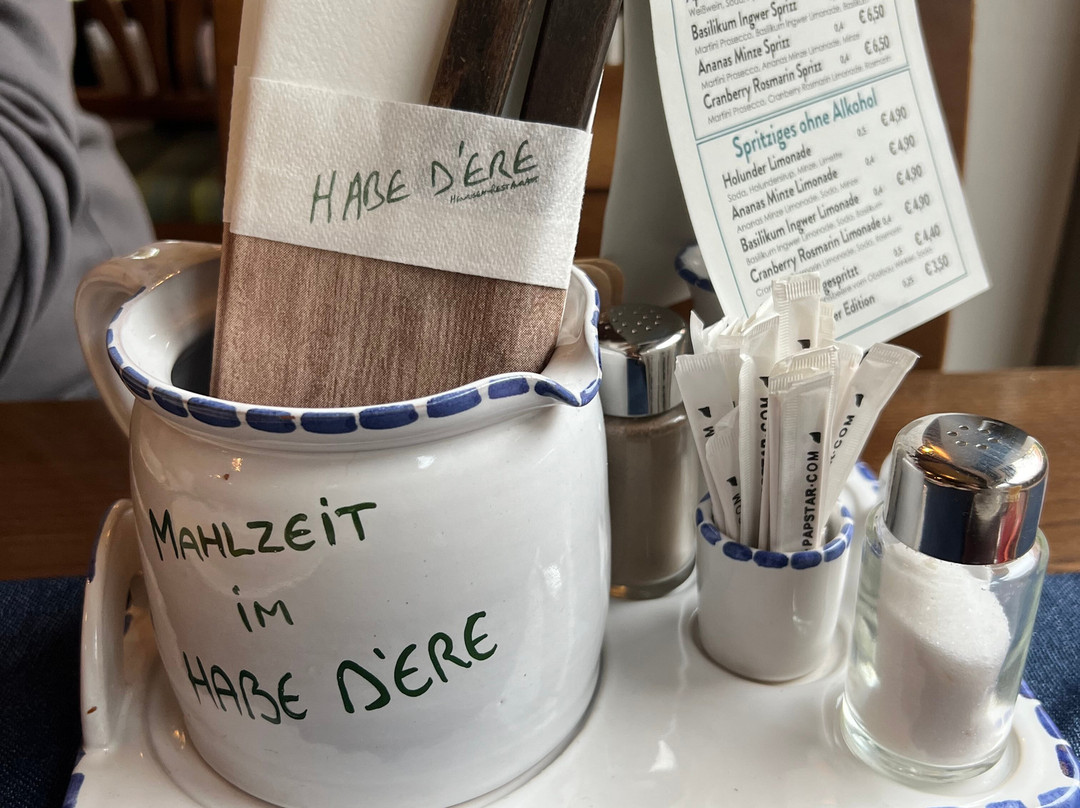 Weißwein, Soda,
Basilikum Ingwer Sprizz
€ 6,50
Martini Prosecco, Basilikum Ingwer Limonade,
0,4
Ananas Minze Sprizz
€ 6,50
Martini Prosecco, Ananas Minze Limonade, Minze
0,4
Cranberry Rosmarin Sprizz
Martini Prosecco, Cranberry Rosmarin Limonade, Rosmarin
Spritziges ohne Alkohol
Holunder Limonade
0,5
€ 4,90
Soda, Holundersirup, Minze, Limette
Ananas Minze Limonade
0,4
€ 4,90
Ananas Minze Limonade, Soda, Minze
Basilikum Ingwer Limonade
0,4
€ 4,90
Basilikum Ingwer Limonade, Soda, Basilikum
Cranberry Rosmarin Limonade
0,4
€ 4,90
Cranberry Rosmarin Limonade, Soda, Rosmarin
gespritzt
0,5
€ 4,40
er Edition
0,25
€ 3,50
HABE D'ERE
MAHLZEIT
IM
HABE D'ERE
PAPSTAR.COM